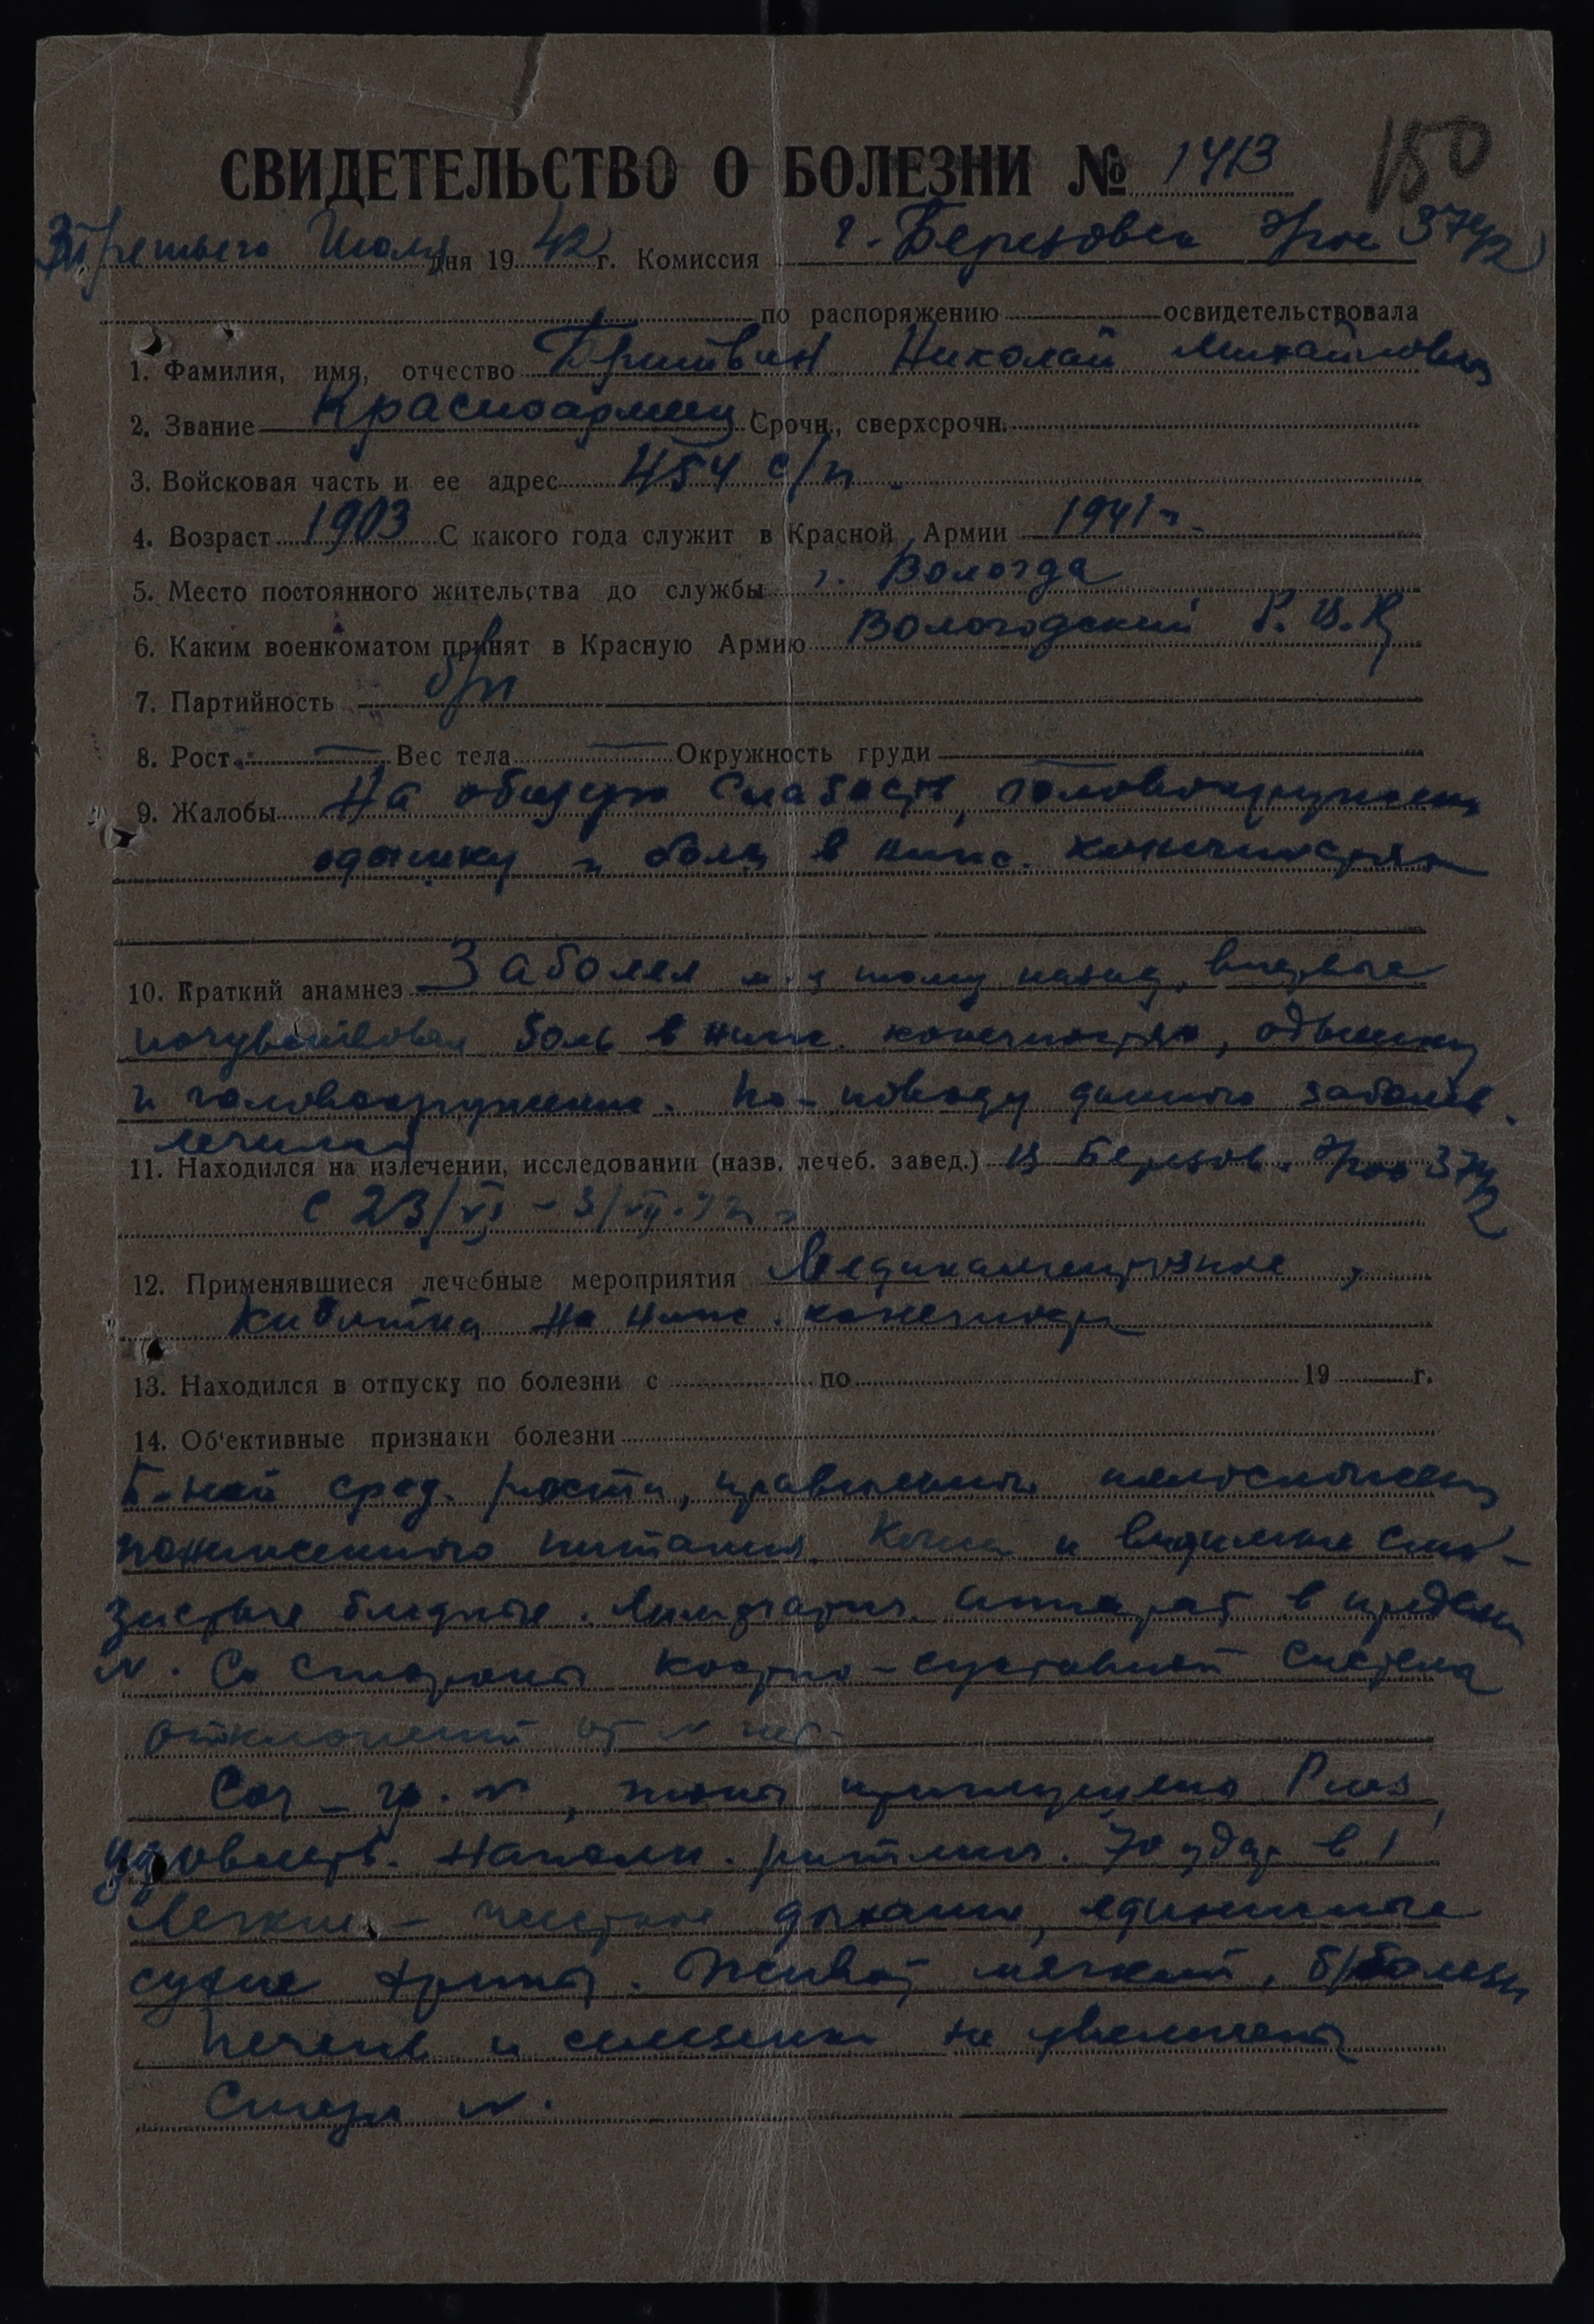 СВИДЕТЕЛЬСТВО О БОЛЕЗНИ № 1413
150
Третьего Июля дня 1942 г. Комиссия г. Березовск 3742
по распоряжению освидетельствовала
1. Фамилия, имя, отчество Бритвин Николай Михайлович
2. Звание Красноармеец Срочн., сверхсрочн.
3. Войсковая часть и ее адрес 454 с/п
4. Возраст 1903 С какого года служит в Красной Армии 1941 г.
5. Место постоянного жительства до службы г. Вологда
6. Каким военкоматом принят в Красную Армию Вологодский Р.В.К
7. Партийность б/п
8. Рост — Вес тела — Окружность груди —
9. Жалобы На общую слабость, головокружение
одышку и боли в ниж. конечностях
10. Краткий анамнез Заболел тому назад, впервые
почувствовал боль в ниж. конечностях, одышку
и головокружение. По-поводу данного заболев.
лечился
11. Находился на излечении, исследовании (назв. лечеб. завед.) В Березов. 3742
с 23/VI – 3/VII.42 г
12. Применявшиеся лечебные мероприятия Медикаментозное,
на ниж. конечности
13. Находился в отпуску по болезни с по 19 г.
14. Об'ективные признаки болезни
Б-ной сред. роста, правильного телосложения
пониженного питания. Кожа и видимые сли-
зистые бледные. Лимфатич. аппарат в пределах
N. Со стороны костно-суставной система
отклонений от N нет.
Cor – гр. N, тоны приглушены Puls
удовлетв. наполн. ритмич. 70 удар в 1
Легкие – дыхание, единичные
сухие хрипы. Живот мягкий, б/болезн
печень и селезенка не увеличены
N.